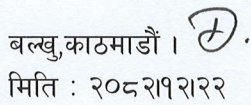 बल्खु,काठमाडौं ।
मिति : २०८२।१२।२२